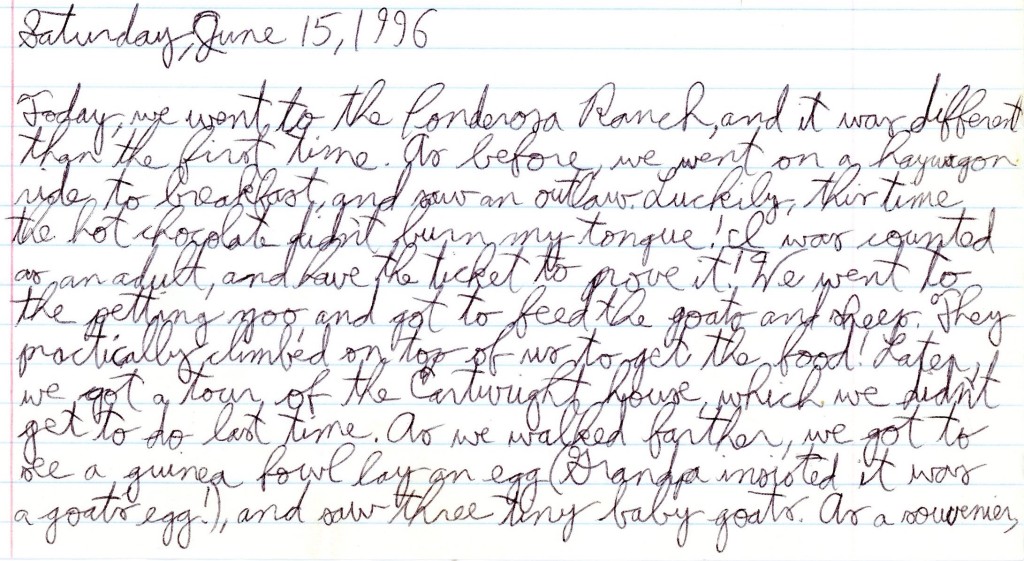 Saturday, June 15, 1996
Today, we went to the Ponderosa Ranch, and it was different
than the first time. As before, we went on a haywagon
ride to breakfast, and saw an outlaw. Luckily, this time
the hot chocolate didn't burn my tongue! I was counted
as an adult, and have the ticket to prove it! We went to
the petting zoo, and got to feed the goats and sheep. They
practically climbed on top of us to get the food! Later,
we got a tour of the Cartwright house, which we didn't
get to do last time. As we walked farther, we got to
see a guinea fowl lay an egg (Grandpa insisted it was
a goats egg!), and saw three tiny baby goats. As a souvenier,